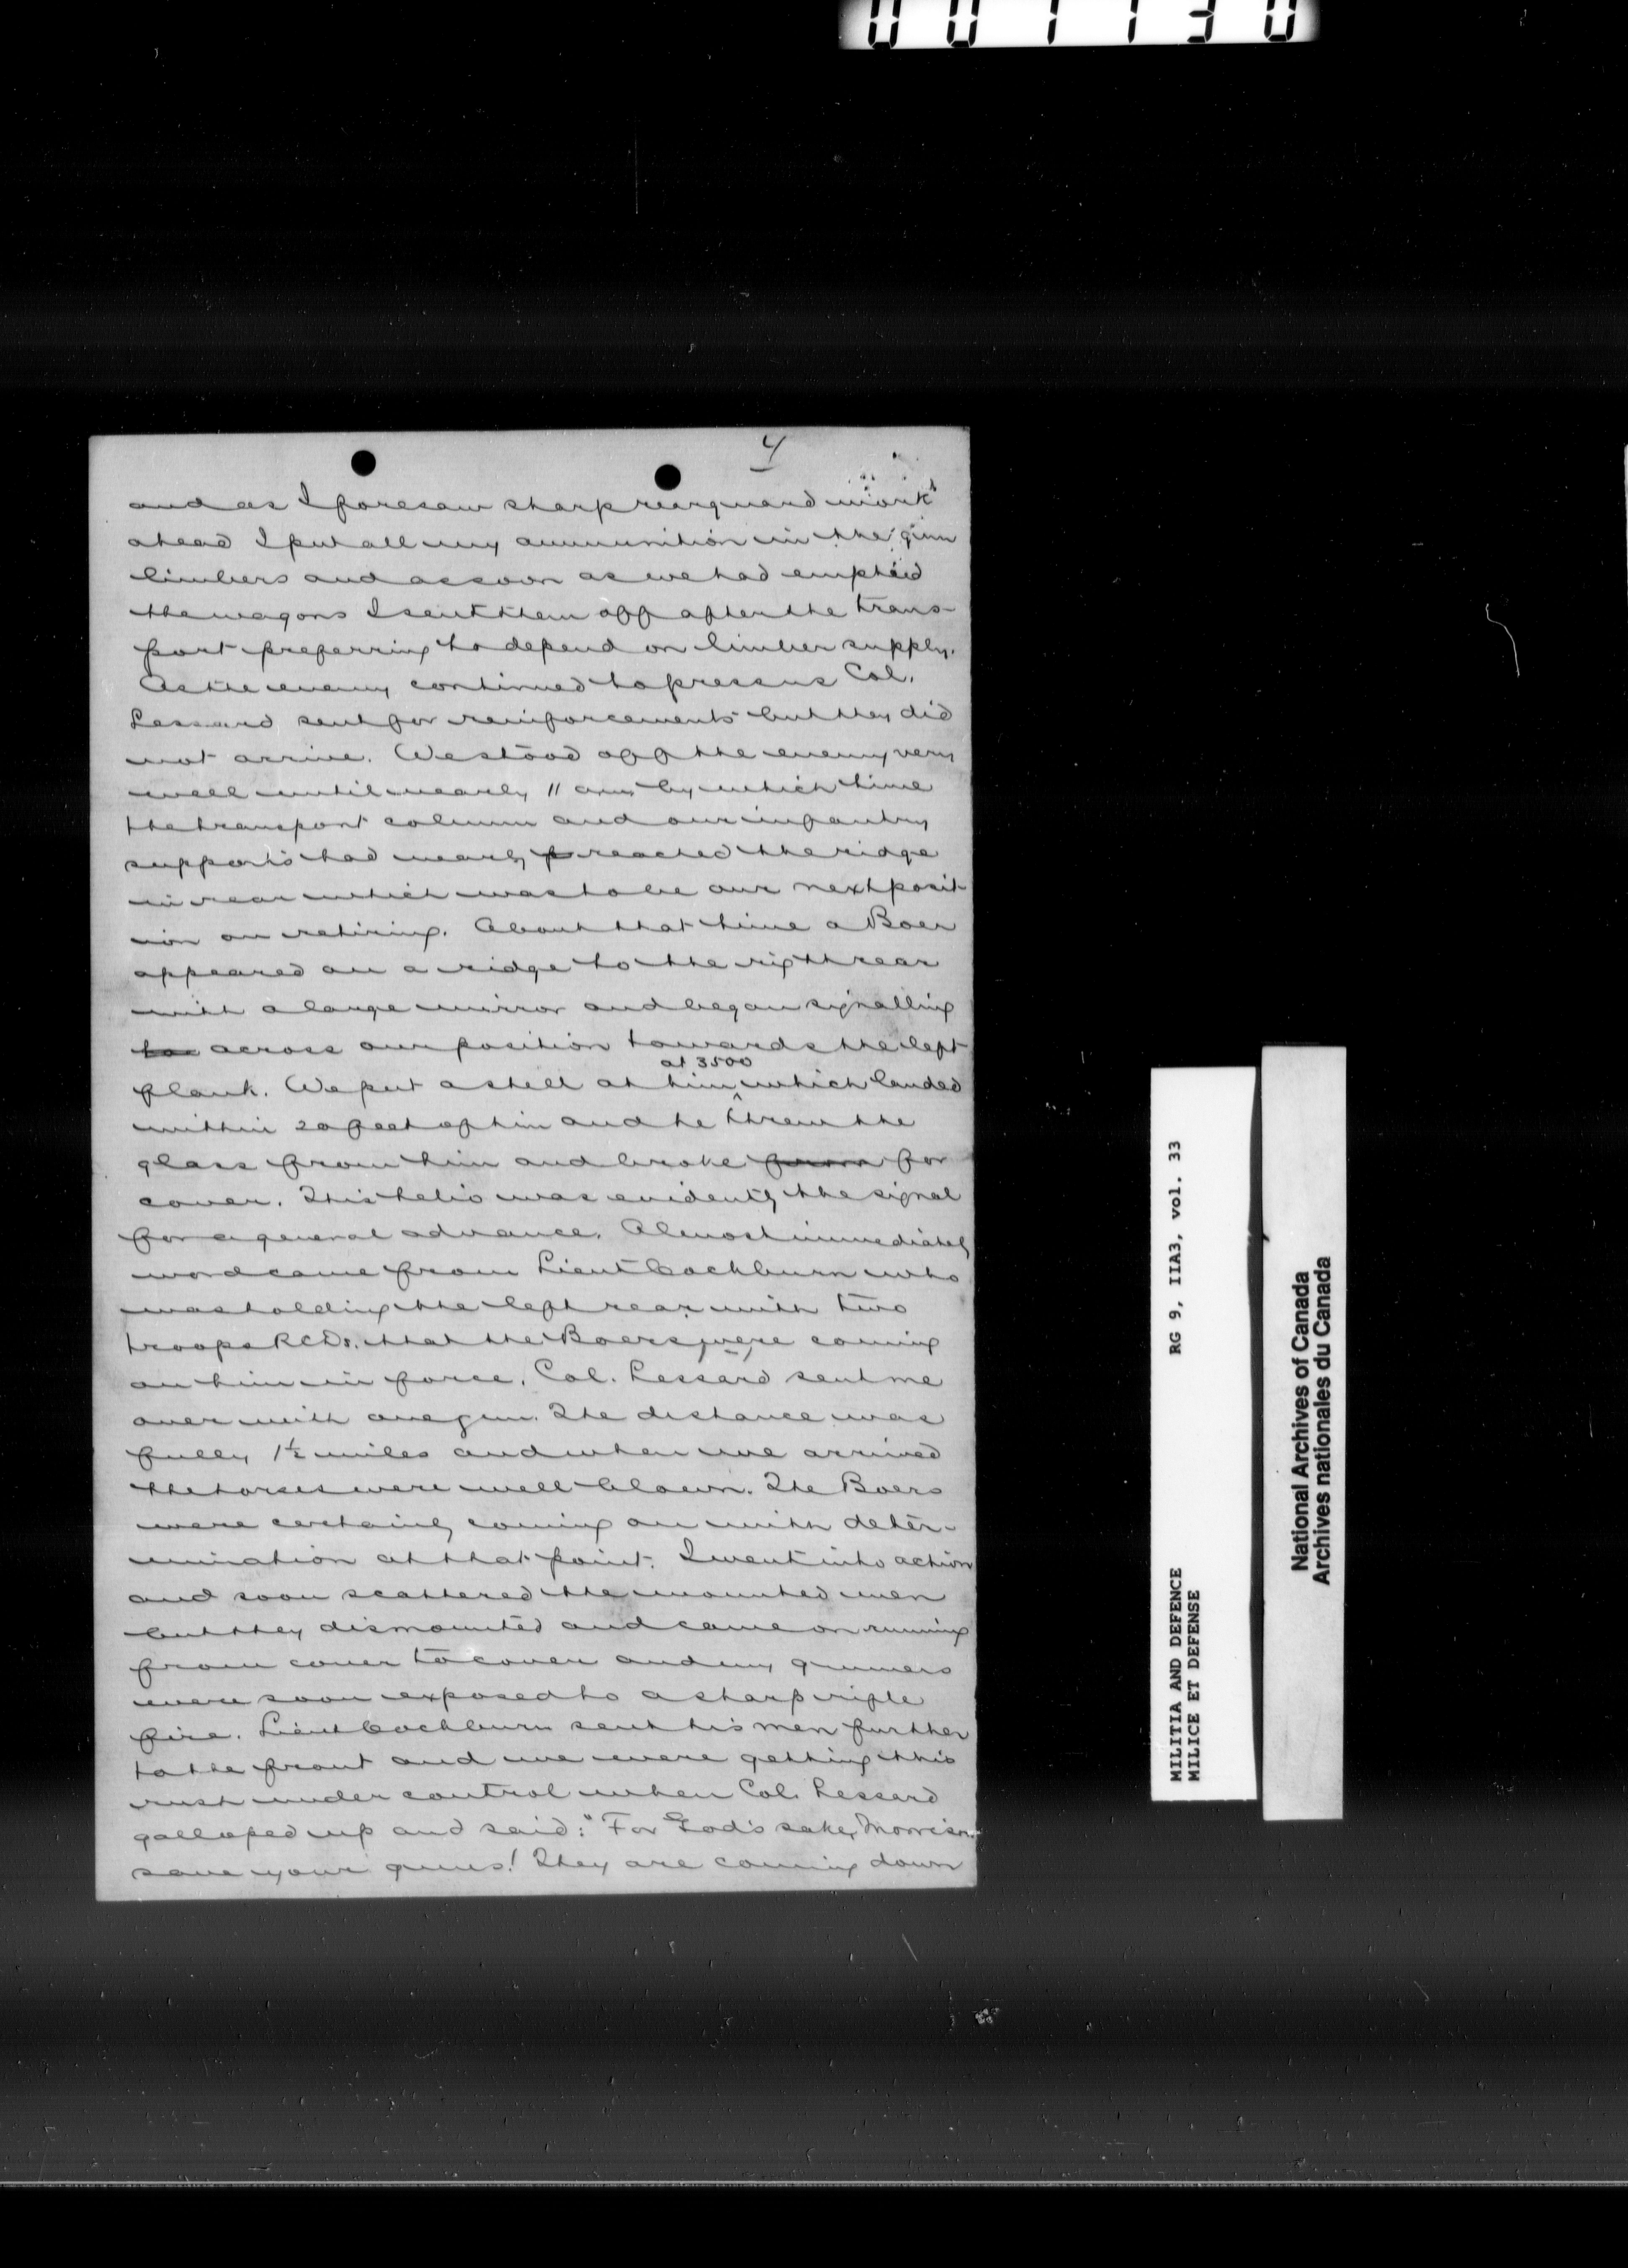 001130
4
and as I foresaw sharp rearguard work
ahead I put all my ammunition in the gun
limbers and as soon as we had emptied
the wagons I sent them off after the trans-
port preferring to depend on limber supply.
As the enemy continued to press us Col.
Lessard sent for reinforcements but they did
not arrive. We stood off the enemy very
well until nearly 11 am by which time
the transport column and our infantry
supports had nearly reached the ridge
in rear which was to be our next posit-
ion on retiring. About that time a Boer
appeared on a ridge to the right rear
with a large mirror and began signalling
across our position towards the left
at 3500
flank. We put a shell at him which landed
within 20 feet of him and he threw the
glass from him and broke for
cover. This helio was evidently the signal
for a general advance. Almost immediately
word came from Lieut Cockburn who
was holding the left rear with two
troops RCDs. that the Boers were coming
on him in force. Col. Lessard sent me
over with one gun. The distance was
fully 1½ miles and when we arrived
the horses were well blown. The Boers
were certainly coming on with deter-
mination at that point. I went into action
and soon scattered the mounted men
but they dismounted and came on running
from cover to cover and my gunners
were soon exposed to a sharp rifle
fire. Lieut Cockburn sent his men further
to the front and we were getting this
rush under control when Col. Lessard
galloped up and said: "For God's sake, Morrison,
save your guns! They are coming down
MILITIA AND DEFENCE RG 9, IIA3, vol. 33
MILICE ET DEFENSE
National Archives of Canada
Archives nationales du Canada